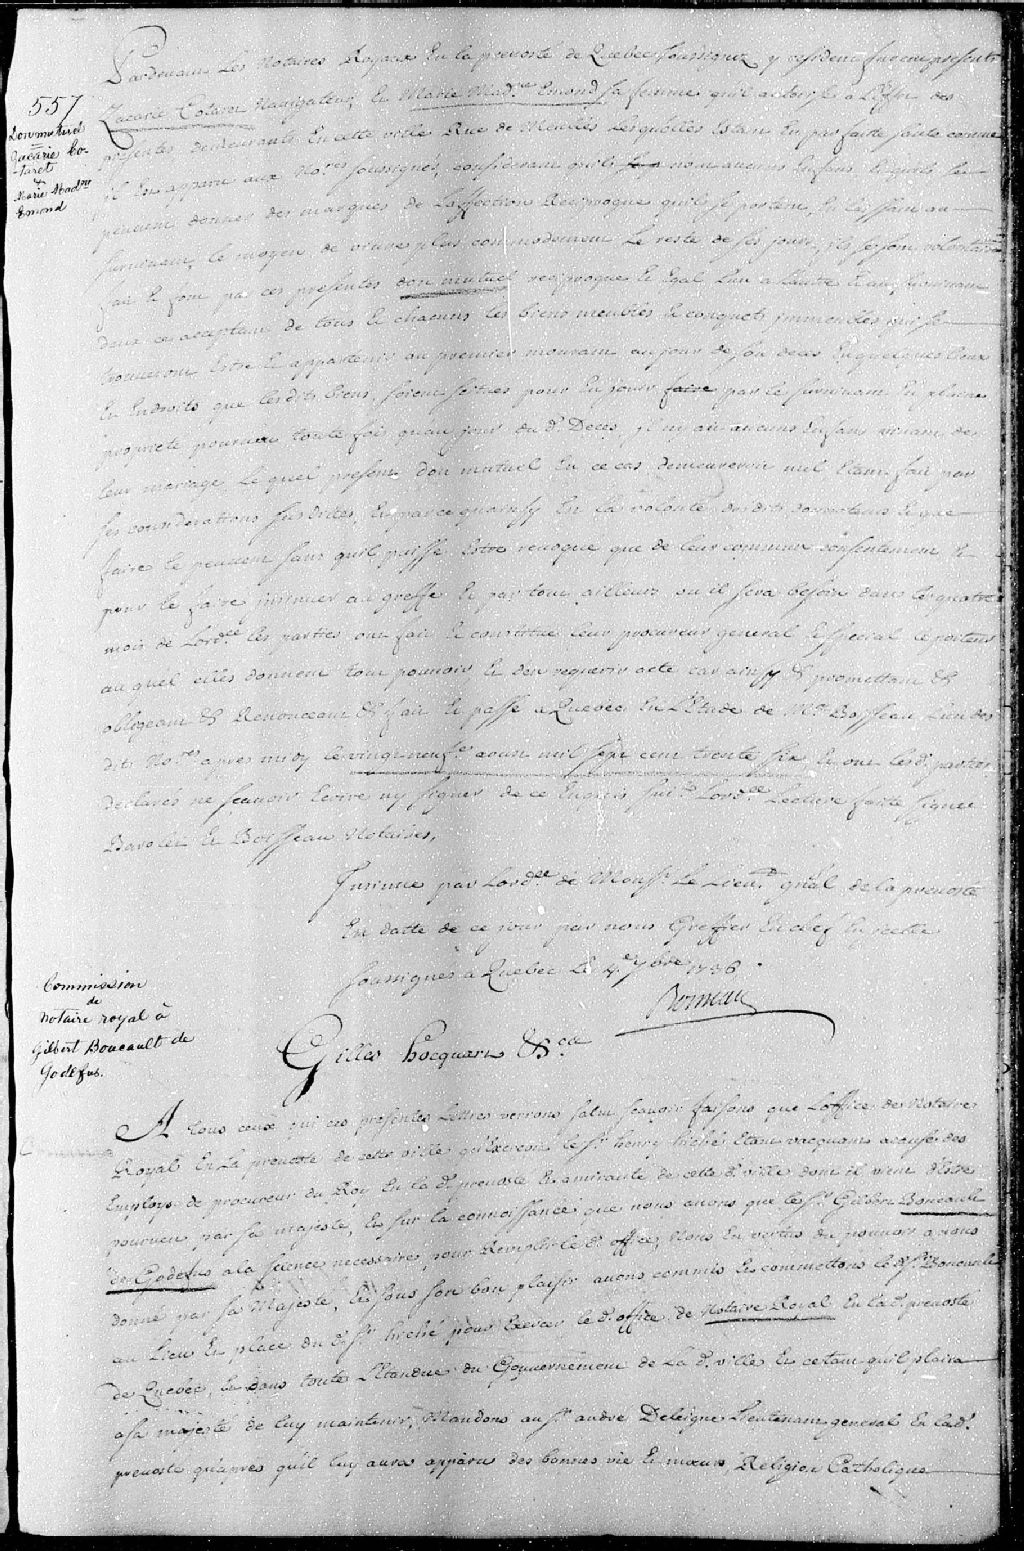 557
Don mutuel
Zacarie Co-
taret
&
Marie Madne
Emond
Pardevant Les Notaires Royaux En la prevosté de Quebec soussignez y residents furent presents
Zacarie Cotaret Navigateur, Et Marie Madne Emond sa femme quil autorise a Leffet des
presentes demeurants En cette ville Rue de Meulles Lesquelles Estant En parfaite santé comme
il Est apparu aux Nores soussignés, considerant quils nont aucuns Enfans, Lesquels
peuvent donner des marques de Laffection Reciproque quils se portent, En laissant au
survivant, le moyen de vivre plus commodement Le reste de ses jours, ils se sont volontairement
fait Et font par ces presentes don mutuel reciproque Et Egal Lun a Lautre Et au survivant
deux ce acceptant de tous Et chacuns les biens meubles Et conquets immeubles qui se
trouveront Estre Et appartenir au premier mourant au jour de son deces En quelques Lieux
Et Endroits que lesdits biens soient situés pour En jouir faire par le survivant En pleine
propriété pourvu toute fois quau jour du d. Deces, il ny ait aucuns Enfans vivans de
leur mariage, Lequel present don mutuel En ce cas demeureroit nul Etant fait par
ses considerations susdites, Et parce quainsy Est la volonté desdits donateurs Et que
faire le peuvent sans quil puisse Estre revoqué que de leur commun consentement Et
pour le faire insinuer au greffe Et partout ailleurs ou il sera besoin dans les quatre
mois de Lordce les parties ont fait Et constitué leur procureur general Et special le porteur
auquel elles donnent tout pouvoir Et den requerir acte car ainsy & promettant &
obligeant & Renonceant & fait Et passé a Quebec En LEtude de Me Boisseau Lun des
dits Nores apres midy le vingt neufe aoust mil sept cent trente six Et ont les d. parties
declarés ne sçavoir Ecrire ny signer de ce Enquis suivt Lordce Lecture faite signé
Barolet Et Boisseau Notaires,
Insinué par Lordce de Monsr Le Lieut gnal de la prevosté
En datte de ce jour par nous Greffier En chef En icelle
soussignés a Quebec Le 4e 7bre 1736.
Boisseau
Commission
de
Notaire royal à
Gilbert Boucault de
Godefus.
Gilles hocquart &ca
A tous ceux qui ces presentes Lettres verront salut sçavoir faisons que Loffice de Notaire
Royal En La prevosté de cette ville qu'Exercoit le Sr henry hiché Etant vacquant acause des
Employs de procureur du Roy En la d. prevosté Et amirauté de cette d. ville dont il vient d'Estre
pourveu par sa majesté, Et sur la connoissance que nous avons que le Sr Gilbert Boucault
de Godefus a la science necessaires pour Remplir le d. office, Nous En vertu du pouvoir a nous
donné par Sa Majesté, Et sous son bon plaisir avons commis Et commettons le d. Sr Boucault
au Lieu Et place du d. Sr hiché pour Exercer le d. office de Notaire Royal En la d. prevosté
de Quebec, Et dans toute L'Etendue du Gouvernement de La d. ville Et ce tant quil plaira
a sa majesté de luy maintenir, Mandons au Sr andré Deleigne Lieutenant general En la d.
prevosté qu'apres quil luy aura apparu des bonnes vie Et mœurs, Religion Catholique